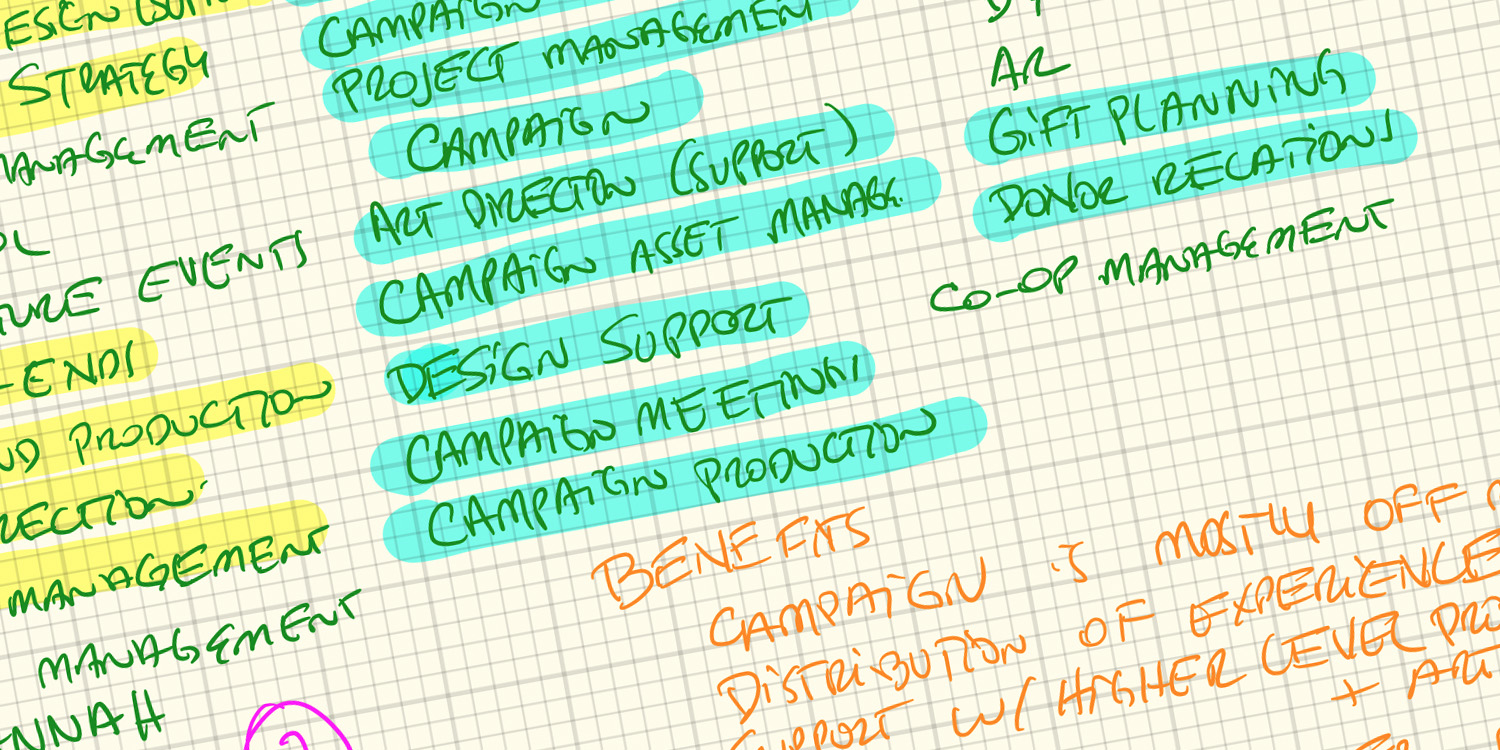 STRATEGY
MANAGEMENT
EVENTS
END PRODUCTION
MANAGEMENT
MANAGEMENT
CAMPAIGN
PROJECT MANAGEMENT
CAMPAIGN
ART DIRECTION (SUPPORT)
CAMPAIGN ASSET MANAGE.
DESIGN SUPPORT
CAMPAIGN MEETINGS
CAMPAIGN PRODUCTION
AR
GIFT PLANNING
DONOR RELATIONS
CO-OP MANAGEMENT
BENEFITS
CAMPAIGN IS MOSTLY OFF
DISTRIBUTION OF EXPERIENCE
SUPPORT W/ HIGHER LEVEL
+ ART